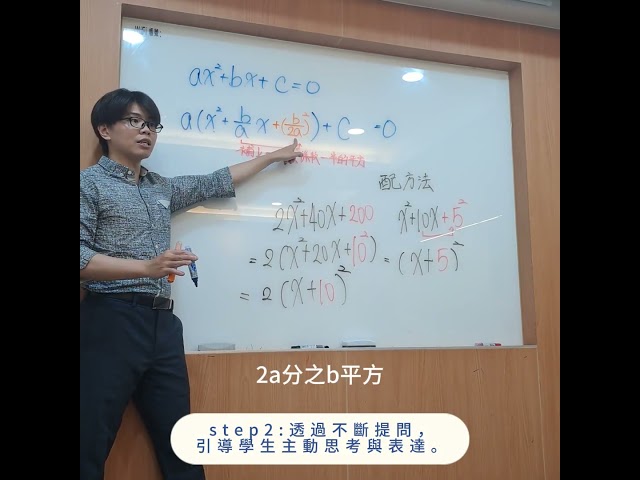 ax²+bx+c=0
a(x²+b/a x+(b/2a)²)+c =0
配方法
2x²+40x+200
=2(x²+20x+10²)
=2(x+10)²
x²+10x+5²
=(x+5)²
2a分之b平方
step2:透過不斷提問，
引導學生主動思考與表達。